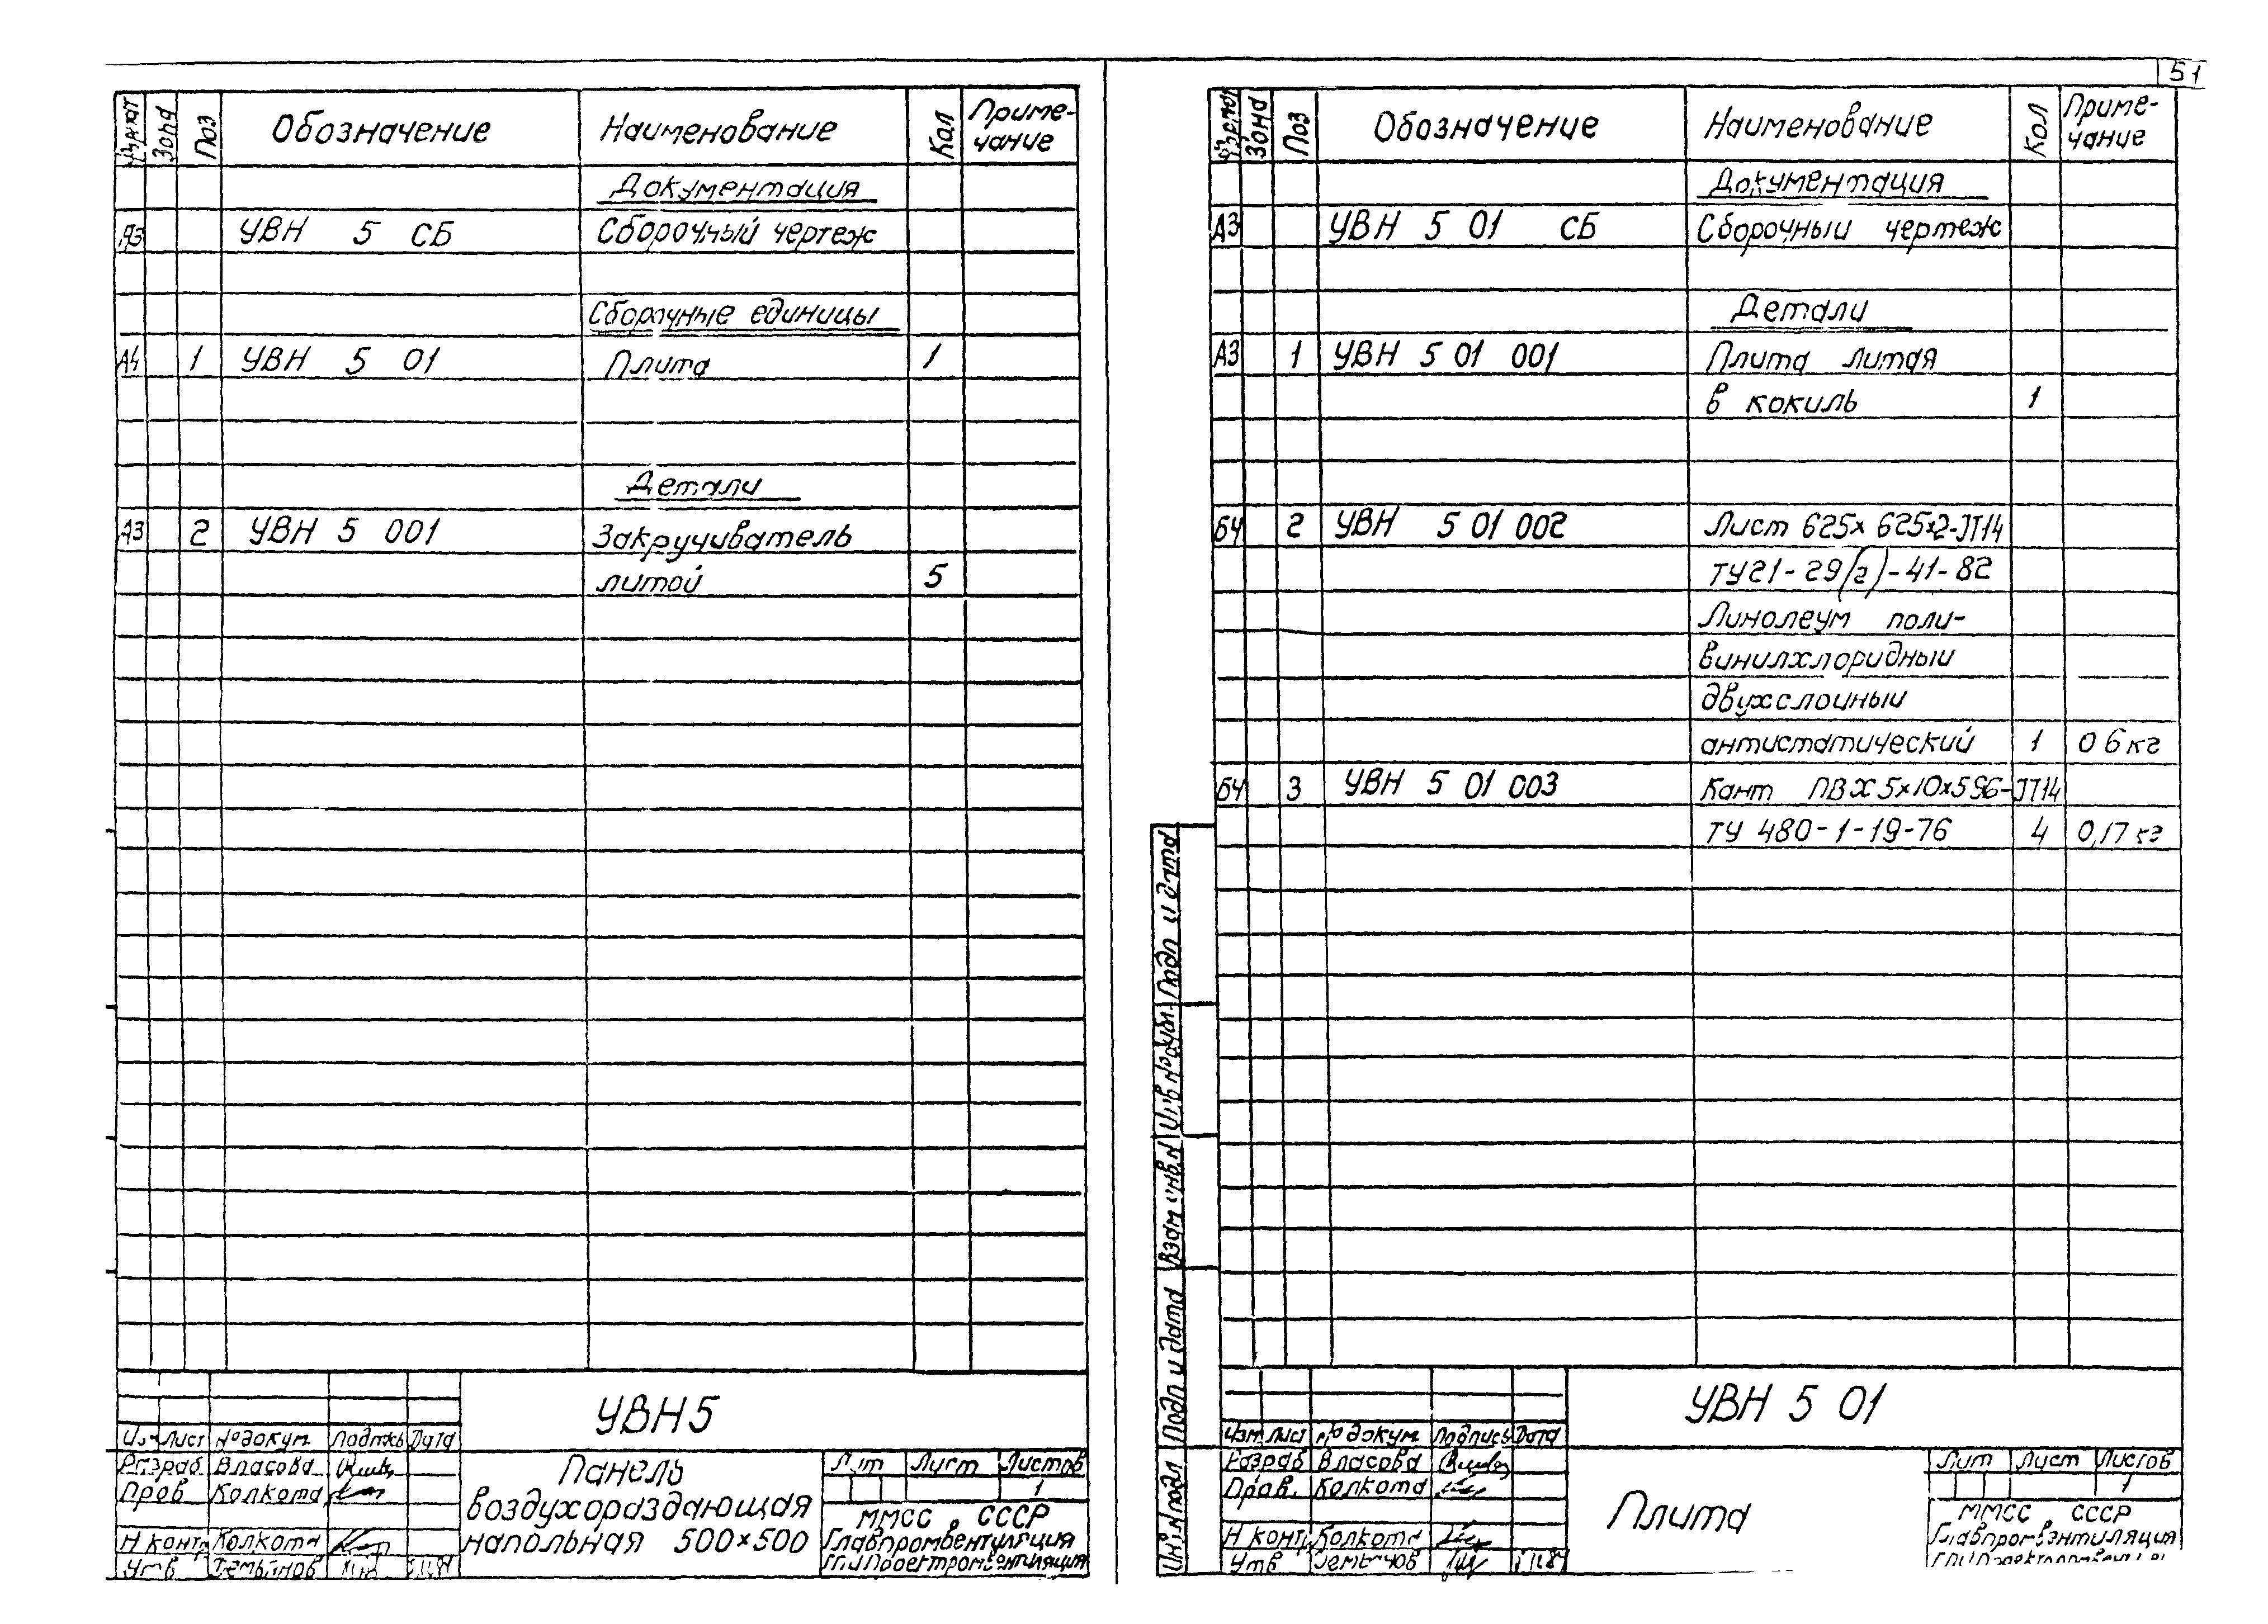 51
Формат Зона Поз Обозначение Наименование Кол Приме-
чание
Документация
А3 УВН 5 СБ Сборочный чертеж
Сборочные единицы
А4 1 УВН 5 01 Плита 1
Детали
А3 2 УВН 5 001 Закручиватель
литой 5
УВН5
Изм Лист № докум. Подпись Дата
Разраб Власова
Пров Колкота
Н контр Колкота
Утв
Панель
воздухораздающая
напольная 500×500
Лит Лист Листов
1
ММСС СССР
Главпромвентиляция
ГПИ Проектпромвентиляция
Формат Зона Поз Обозначение Наименование Кол Приме-
чание
Документация
А3 УВН 5 01 СБ Сборочный чертеж
Детали
А3 1 УВН 5 01 001 Плита литая
в кокиль 1
БЧ 2 УВН 5 01 002 Лист 625×625×2-JT14
ТУ21-29(2)-41-82
Линолеум поли-
винилхлоридный
двухслойный
антистатический 1 0 6 кг
БЧ 3 УВН 5 01 003 Кант ПВХ 5×10×596-JT14
ТУ 480-1-19-76 4 0,17 кг
Подп и дата
Инв № дубл.
Взам инв.№
Подп и дата
Инв.№ подл
УВН 5 01
Изм Лист № докум Подпись Дата
Разраб Власова
Пров. Колкота
Н контр Колкота
Утв
Плита
Лит Лист Листов
1
ММСС СССР
Главпромвентиляция